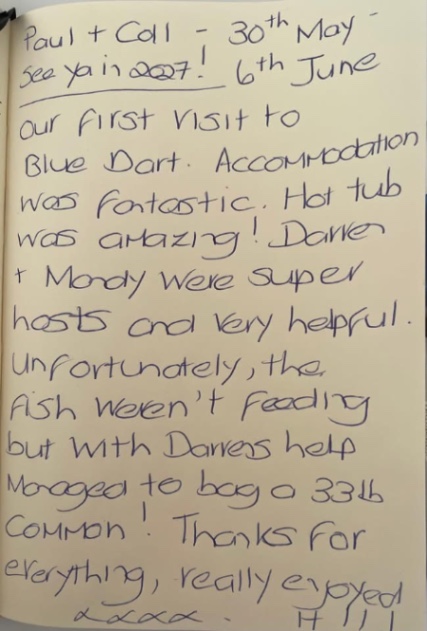 Paul + Coll - 30th May -
See ya in 2027! 6th June
our first visit to
Blue Dart. Accommodation
was fantastic. Hot tub
was amazing! Darren
+ Mandy were super
hosts and very helpful.
Unfortunately, the
fish weren't feeding
but with Darrens help
Managed to bag a 33lb
Common! Thanks for
everything, really enjoyed
xxxx. it!!!